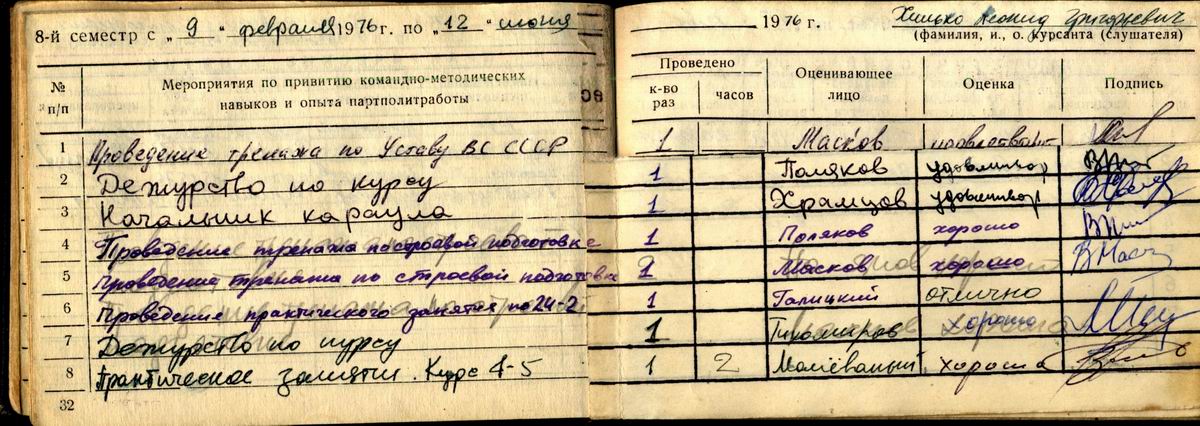 8-й семестр с „ 9 “ февраля 1976 г. по „ 12 “ июня 1976 г. Хилько Леонид Григорьевич
(фамилия, и., о. курсанта (слушателя)
№ п/п Мероприятия по привитию командно-методических навыков и опыта партполитработы Проведено к-во раз часов Оценивающее лицо Оценка Подпись
1 Проведение тренажа по Уставу ВС СССР 1 Масков
2 Дежурство по курсу 1 Поляков удовлетвор
3 Начальник караула 1 Храмцов удовлетвор
4 Проведение тренажа по строевой подготовке 1 Поляков хорошо
5 Проведение тренажа по строевой подготовке 2 Масков хорошо
6 Проведение практического занятия по 24-2 1 Галицкий отлично
7 Дежурство по курсу 1 Тихомиров хорошо
8 Практическое занятие. Курс 4-5 1 2 хорошо
32